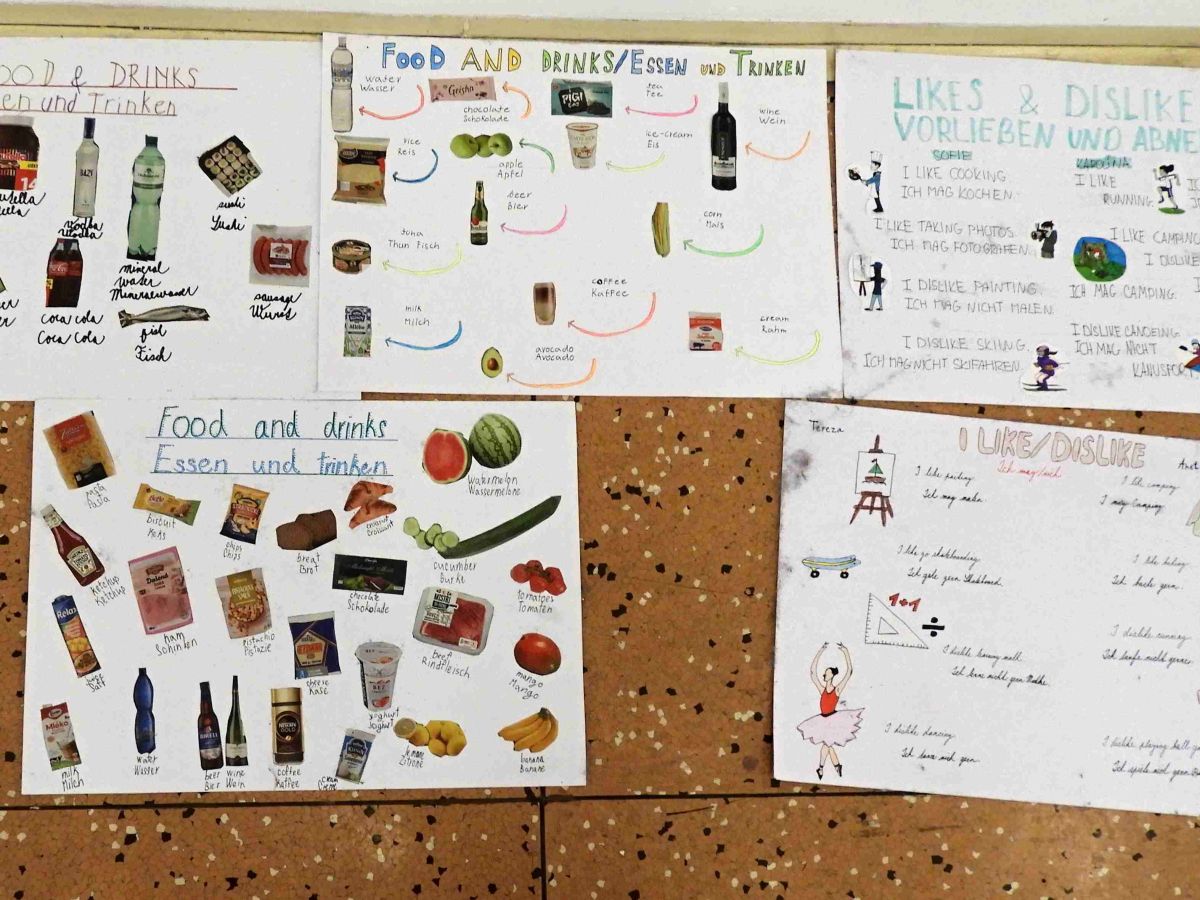 FOOD & DRINKS
en und Trinken
vodka
vodka
sushi
Sushi
mineral
water
Mineralwasser
sausage
Wurst
coca cola
Coca Cola
fish
Fisch
FOOD AND DRINKS/ESSEN UND TRINKEN
water
Wasser
Geisha
chocolate
Schokolade
PIGI
ČAJ
tea
Tee
wine
Wein
rice
Reis
apple
Apfel
ice-cream
Eis
beer
Bier
corn
Mais
tuna
Thun Fisch
coffee
Kaffee
milk
Milch
Mléko
cream
Rahm
avocado
Avocado
LIKES & DISLIKE
VORLIEBEN UND ABNE
SOFIE
I LIKE COOKING.
ICH MAG KOCHEN.
I LIKE TAKING PHOTOS.
ICH MAG FOTOGRAFEN.
I DISLIKE PAINTING.
ICH MAG NICHT MALEN.
I DISLIKE SKIING.
ICH MAG NICHT SKIFAHREN.
KAROLÍNA
I LIKE
RUNNING.
I LIKE CAMPING
ICH MAG CAMPING.
I DISLIKE CANOEING.
ICH MAG NICHT
KANUSPOR
Food and drinks
Essen und trinken
pasta
Pasta
biscuit
Keks
chips
Chips
breat
Brot
croissant
Croissant
watermelon
Wassermelone
HEINZ
ketchup
Ketchup
ham
Schinken
pistachio
Pistazie
chocolate
Schokolade
cucumber
Gurke
tomatoes
Tomaten
Relax
Saft
cheese
Käse
yoghurt
Joghurt
beef
Rindfleisch
mango
Mango
Mléko
milk
Milch
water
Wasser
BIRELL
beer
Bier
wine
Wein
NESCAFÉ
GOLD
coffee
Kaffee
cream
Creme
lemone
Zitrone
banana
Banane
Tereza
I LIKE/DISLIKE
Ich mag/nich
I like painting.
Ich mag malen.
I like go skateboarding.
Ich gehe gern Skateboard.
1+1
÷
I dislike learning math.
Ich lerne nicht gern Mathe.
I dislike dancing.
Ich tanze nich gern.
Anet
I like camping
I mag Camping.
I like baking.
Ich backe gern.
I dislike running
Ich laufe nicht gerne
I dislike playing ball g
Ich spiele nich gern B